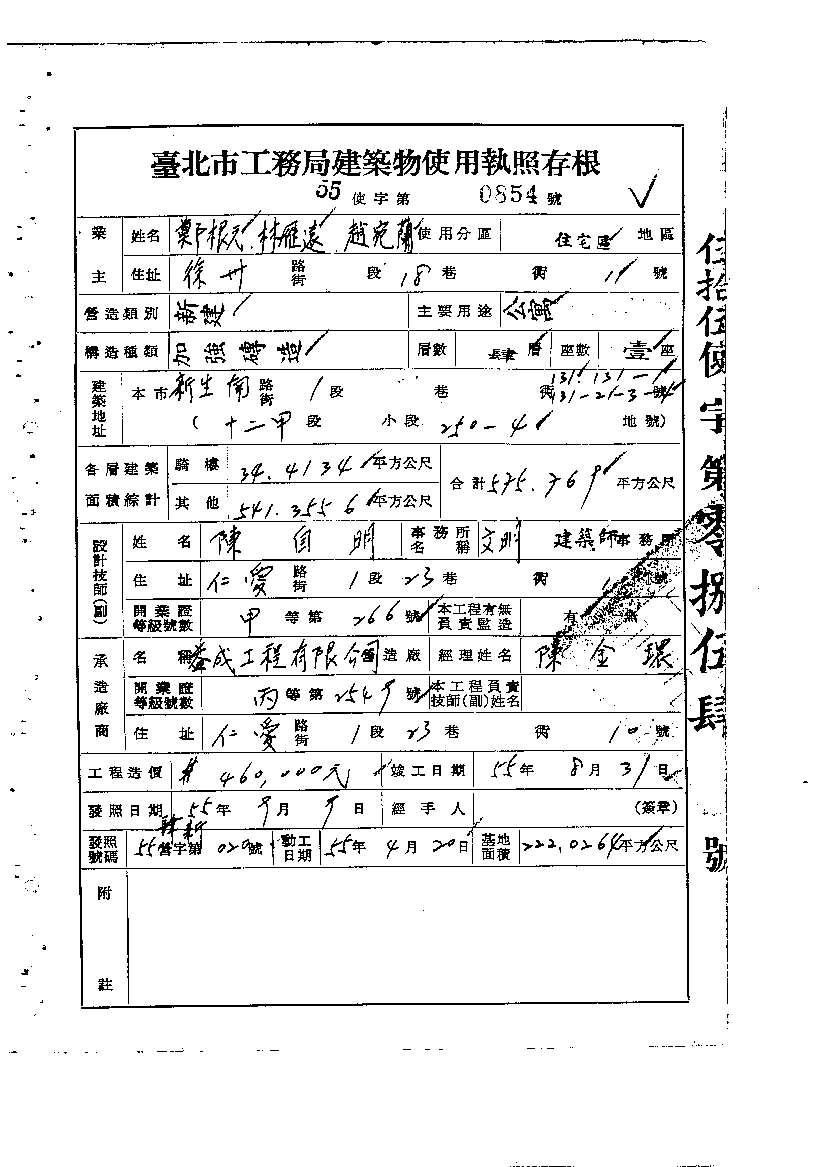 臺北市工務局建築物使用執照存根
55 使字第 0854 號
業主 姓名 鄭根天、林雁遠 趙宛蘭 使用分區 住宅區 地區
住址 徐州 路街 段 18 巷 衖 11 號
營造類別 新建 主要用途 公寓
構造種類 加強磚造 層數 肆 層 座數 壹 座
建築地址 本市 新生南 路街 1 段 巷 衖 131、131-1 131-2、-3、-4 號
(十二甲 段 小段 250-4 地號)
各層建築面積綜計 騎樓 34.4134 平方公尺 合計 575.769 平方公尺
其他 541.3556 平方公尺
設計技師(副) 姓名 陳自明 事務所名稱 文明 建築師事務所
住址 仁愛 路街 1 段 23 巷 衖 號
開業證等級號數 甲 等第 266 號 本工程有無負責監造 有 無
承造廠商 名稱 泰成工程有限公司 營造廠 經理姓名 陳金環
開業證等級號數 丙 等第 2549 號 本工程負責技師(副)姓名
住址 仁愛 路街 1 段 23 巷 衖 10 號
工程造價 460,000元 竣工日期 55年 8月 31日
發照日期 55年 9月 9日 經手人 (簽章)
發照號碼 55 營字第 020 號 動工日期 55年 4月 20日 基地面積 222.0264 平方公尺
附註
伍拾伍使字第零捌伍肆號